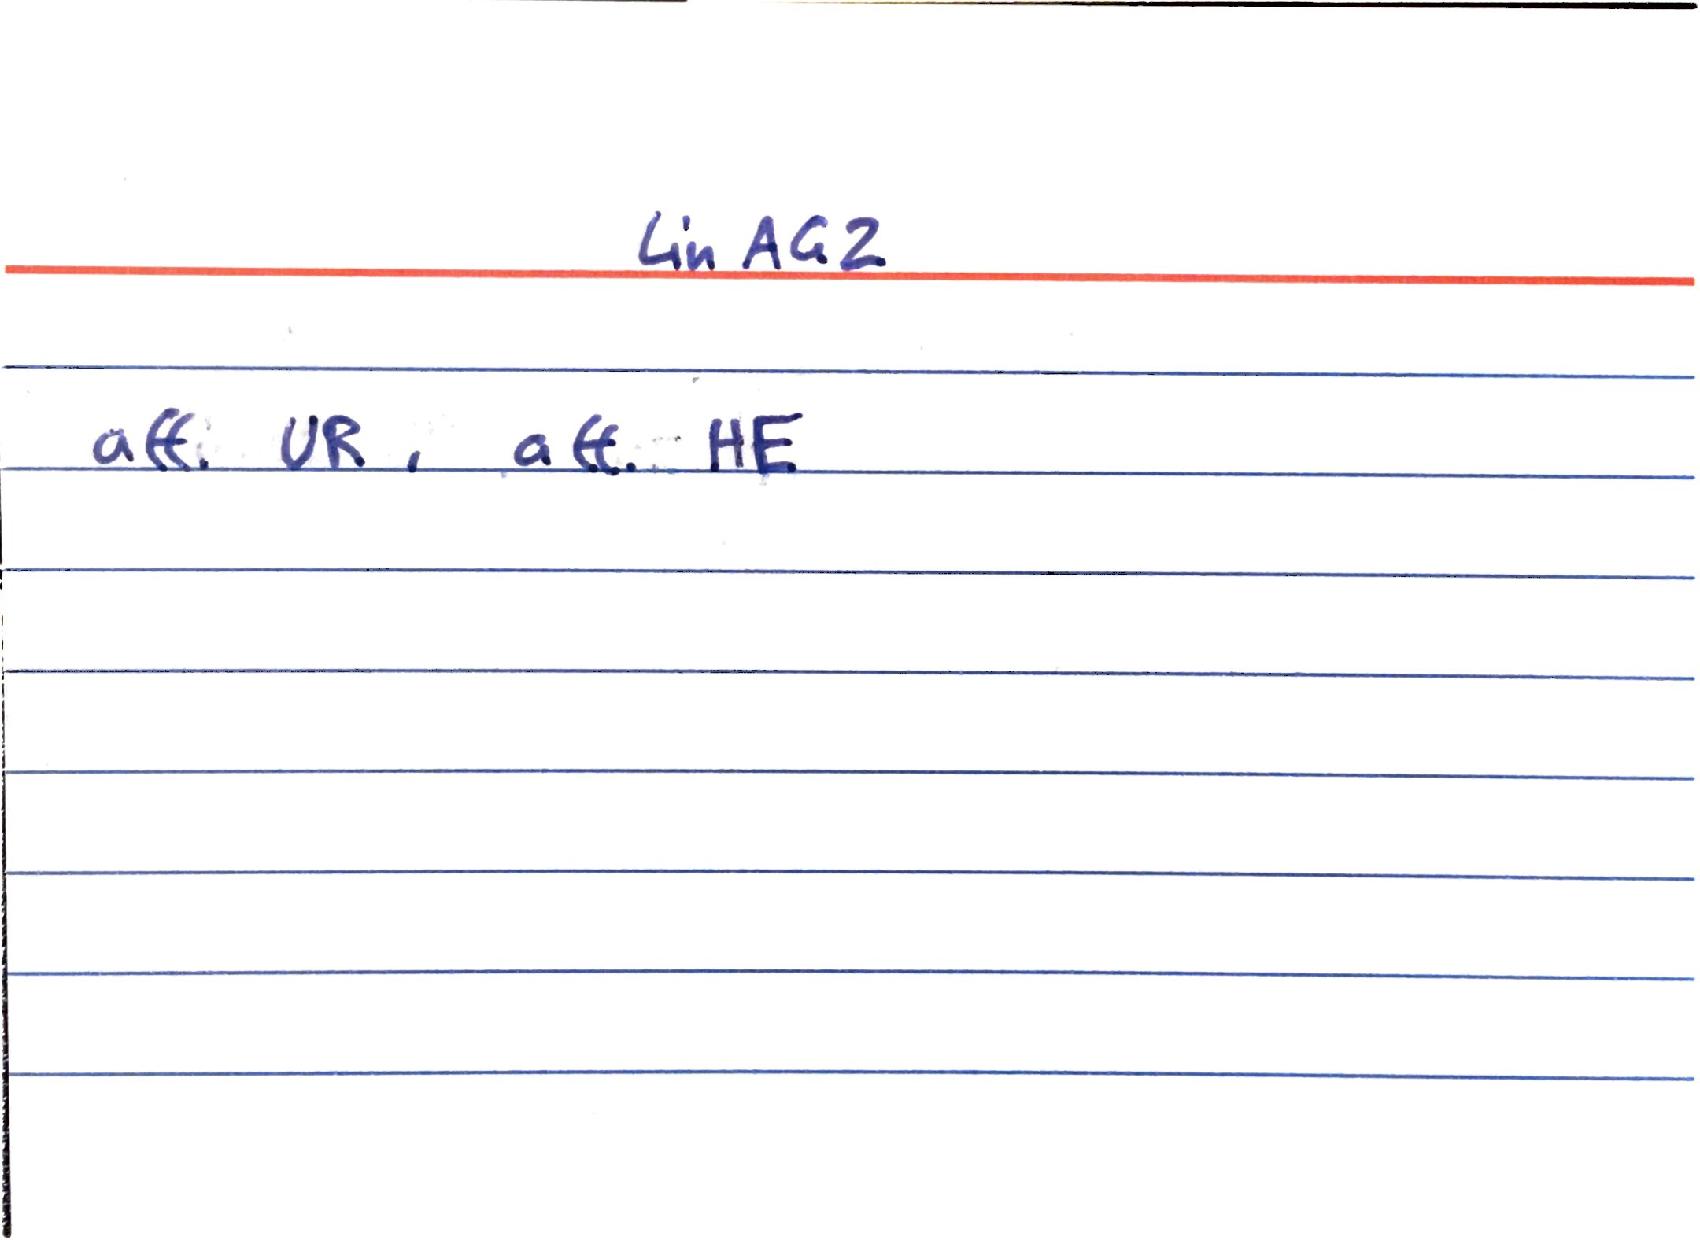 Lin AG 2
aff. UR, aff. HE